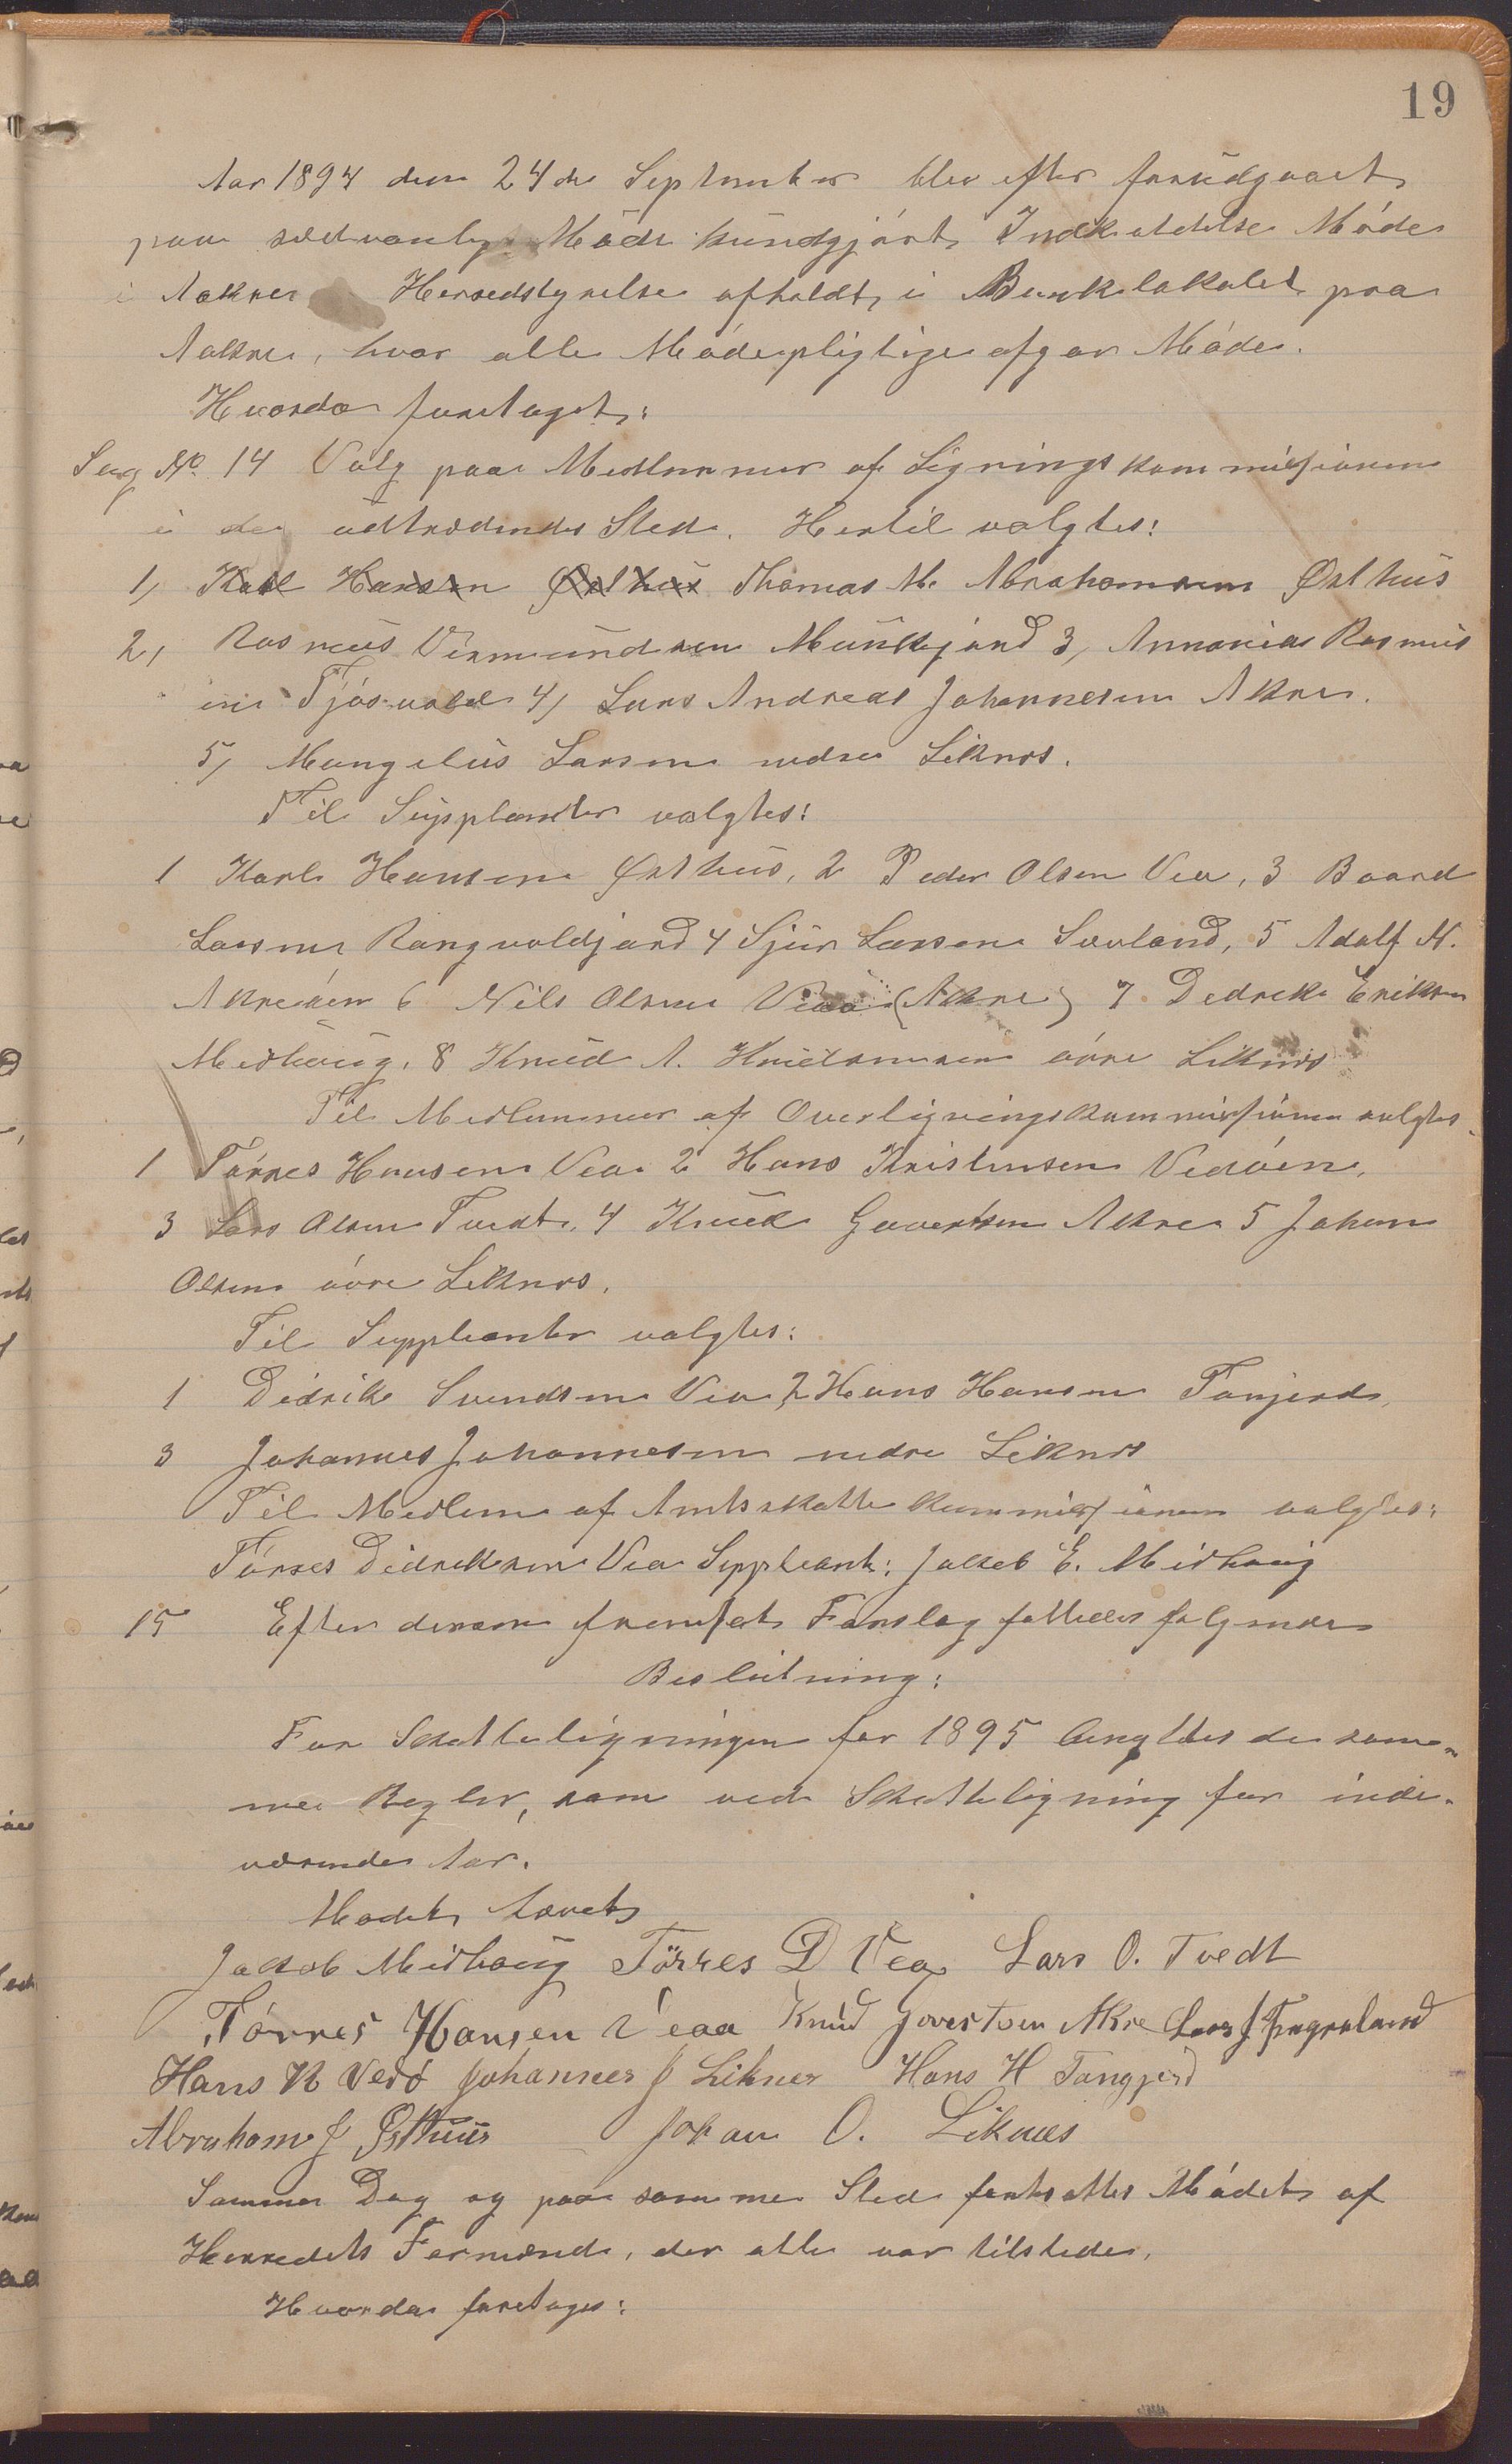 19
Aar 1894 den 24de September blev efter forudgaaet
paa sædvanlig Maade kundgjørt Indkaldelse Møde
i Aakre Herredstyrelse afholdt i Banklokalet paa
Aakre, hvor alle Mødepligtige afgav Møde.
Hvorda foretoges:
Sag No. 14 Valg paa Medlemmer af Ligningskommissionen
i de udtrædendes Sted. Hertil valgtes:
1, Karl Hansen Østhus Thomas M. Abrahamsen Østhus
2, Rasmus Vermundsen Munkejord 3, Annanias Rasmus
sen Tjøsvold 4, Lars Andreas Johannesen Akre.
5, Mangelus Larsen nedre Liknes.
Til Supplanter valgtes:
1 Karl Hansen Østhus, 2 Peder Olsen Vea, 3 Baard
Larsen Rangvaldjord 4 Sjur Larsen Sævland, 5 Adolf N.
Akrehavn 6 Nils Olsen Veaa (Akre) 7 Dedrek Eriksen
Medhoug, 8 Knud A. Knudsen øvre Liknes
Til Medlemmer af Overligningskommissionen valgtes
1 Tørres Hansen Vea 2 Hans Kristensen Vedøen,
3 Lars Olsen Tvedt, 4 Knud Govertsen Akre 5 Johan
Olsen øvre Liknes.
Til Suppleanter valgtes:
1 Didrik Svendsen Vea, 2 Hans Hansen Tanjerd,
3 Johannes Johannesen nedre Liknes
Til Medlem af Amtsskattekommissionen valgtes:
Tørres Didreksen Vea Suppleant: Jakob E. Medhoug
15 Efter derom fremsat Forslag fattedes følgende
Beslutning:
For Skatteligningen for 1895 benyttes de sam-
me Regler, som ved Skatteligning for inde-
værende Aar.
Mødet hævet
Jakob Medhoug Törres D Vea Lars O. Tvedt
Tørres Hansen Veaa Knud Govertsen Akre Lars J Fagerland
Hans K Vedø Johannes J Liknes Hans H Tangjerd
Abraham J Østhuus Johan O. Liknes
Samme Dag og paa samme Sted fortsattes Mødet af
Herredets Formænd, der alle var tilstede.
Hvorda foretages: